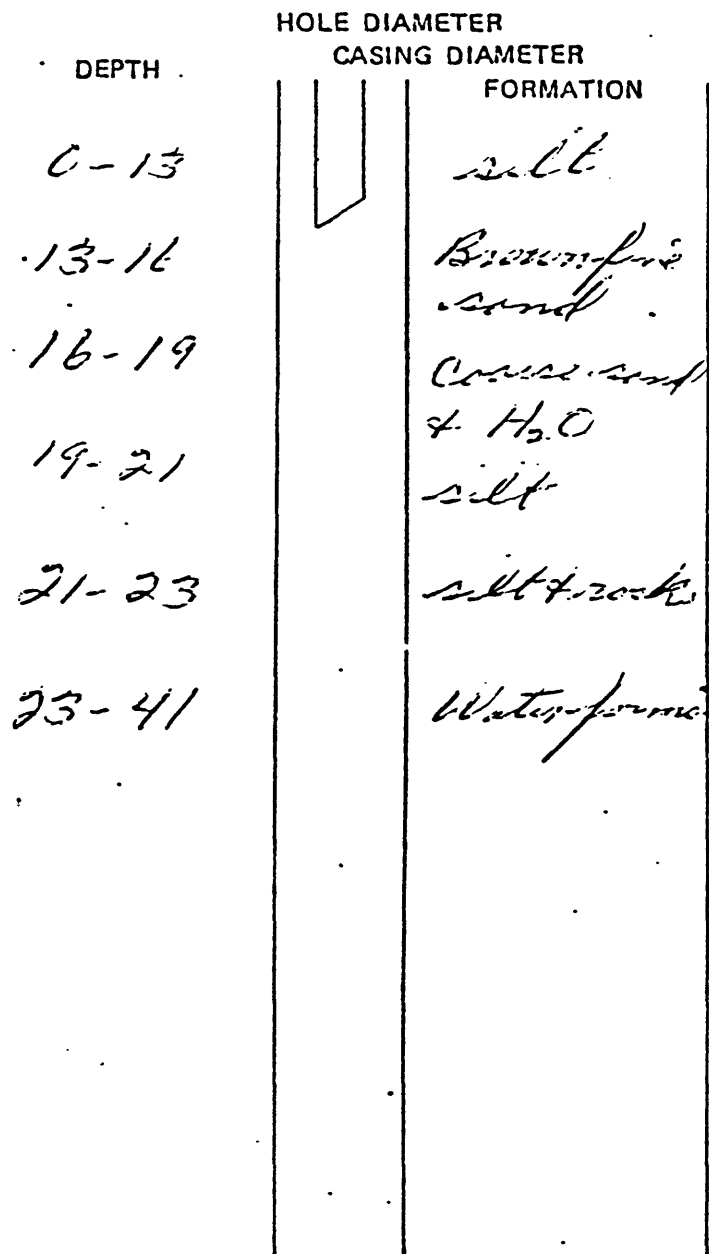 HOLE DIAMETER
CASING DIAMETER
DEPTH
FORMATION
0-13 silt
13-16 Brown fine
sand
16-19 Course sand
& H2O
19-21 silt
21-23 silt & rock
23-41 Water forma